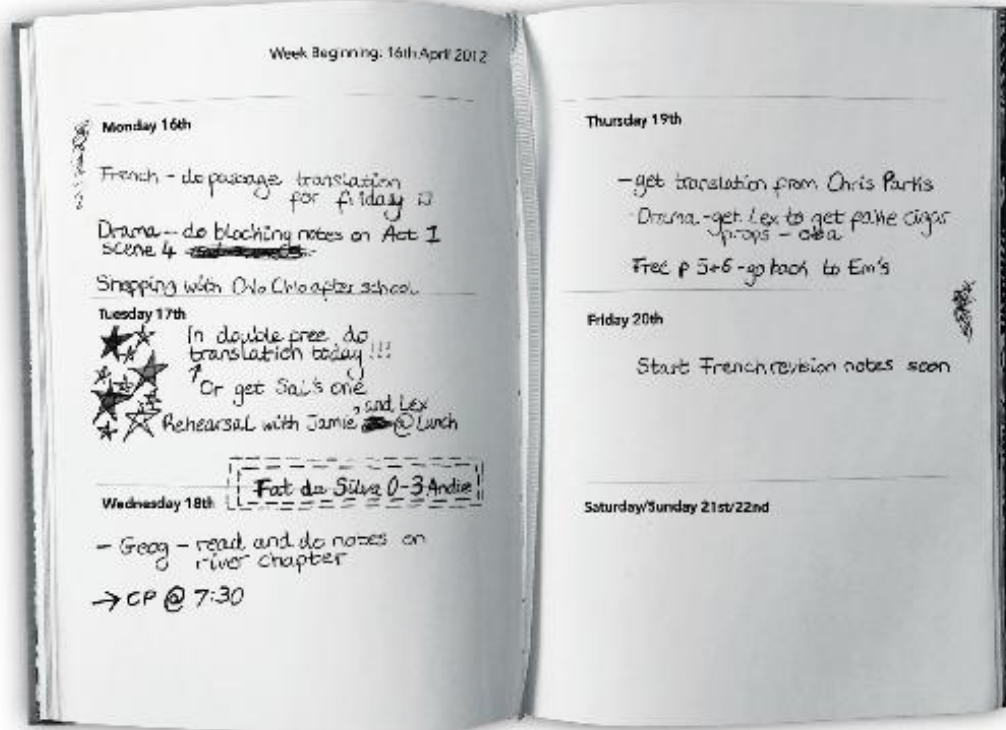 Week Beginning: 16th April 2012
Monday 16th
French - do passage translation
for friday
Drama - do blocking notes on Act 1
scene 4
Shopping with Chlo after school
Tuesday 17th
In double free do
translation today !!!
Or get Sal's one
and Lex
Rehearsal with Jamie @ Lunch
Fat da Silva 0-3 Andie
Wednesday 18th
- Geog - read and do notes on
river chapter
→ CP @ 7:30
Thursday 19th
- get translation from Chris Parks
Drama - get Lex to get fake cigar
props -
Free p 5+6 - go back to Em's
Friday 20th
Start French revision notes soon
Saturday/Sunday 21st/22nd